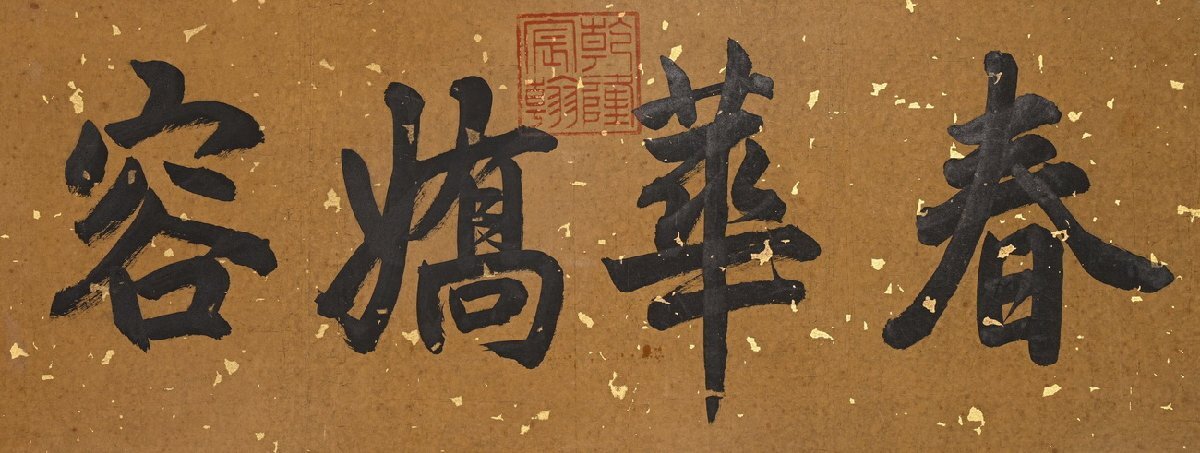 春華嬌容
乾隆宸翰